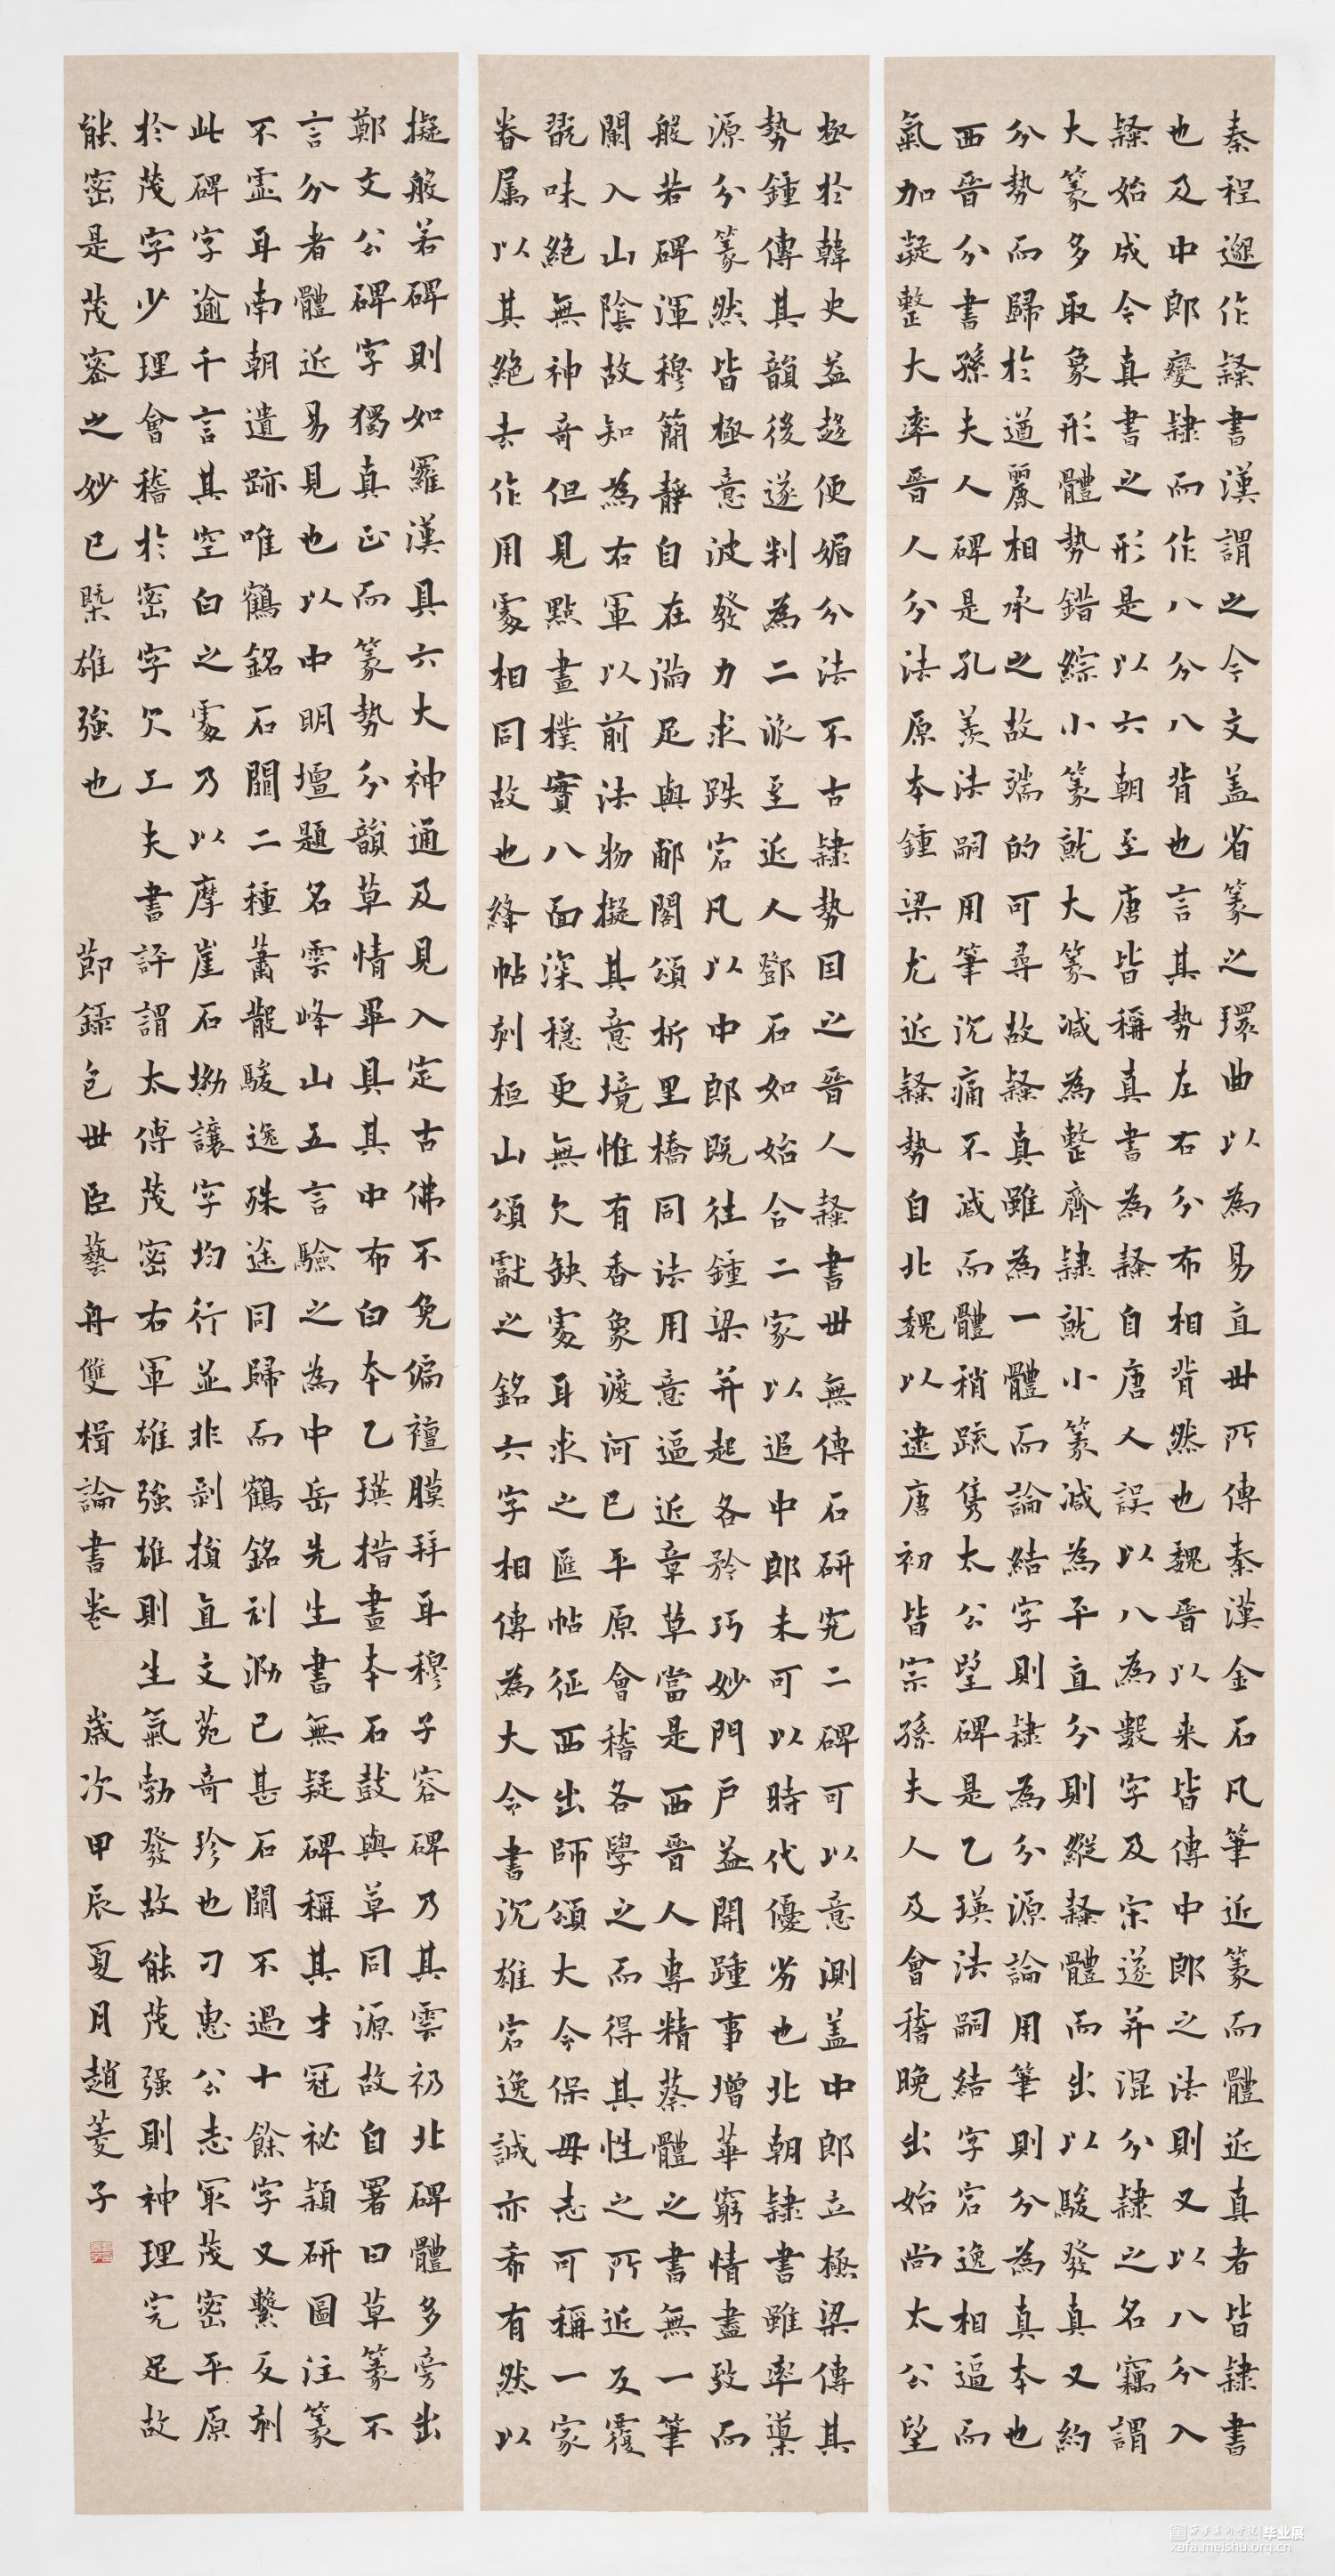 秦程邈作隸書漢謂之今文蓋省篆之環曲以為易直世所傳秦漢金石凡筆近篆而體近真者皆隸書
也及中郎變隸而作八分八背也言其勢左右分布相背然也魏晉以来皆傳中郎之法則又以八分入
隸始成今真書之形是以六朝至唐皆稱真書為隸自唐人誤以八為數字及宋遂并混分隸之名竊謂
大篆多取象形體勢錯綜小篆就大篆減為整齊隸就小篆減為平直分則縱隸體而出以駿發真又約
分勢而歸於遒麗相承之故端的可尋故隸真雖為一體而論結字則隸為分源論用筆則分為真本也
西晉分書孫夫人碑是孔羨法嗣用筆沉痛不減而體稍疏隽太公望碑是乙瑛法嗣結字宕逸相逼而
氣加凝整大率晉人分法原本鍾梁尤近隸勢自北魏以逮唐初皆宗孫夫人及會稽晚出始尚太公望
極於韓史益趍便媚分法不古隸勢因之晉人隸書世無傳石研究二碑可以意測蓋中郎立極梁傳其
勢鍾傳其韻後遂判為二派至近人鄧石如始合二家以追中郎未可以時代優劣也北朝隸書雖率導
源分篆然皆極意波發力求跌宕凡以中郎既往鍾梁并起各矜巧妙門戶益開踵事增華窮情盡致而
般若碑渾穆簡靜自在滿足與郙閣頌析里橋同法用意逼近章草當是西晉人專精蔡體之書無一筆
闌入山陰故知為右軍以前法物擬其意境惟有香象渡河已平原會稽各學之而得其性之所近反覆
翫味絕無神奇但見點畫樸實八面深穩更無欠缺處耳求之匯帖征西出師頌大令保母志可稱一家
眷属以其絕去作用處相同故也絳帖刻桓山頌獻之銘六字相傳為大令書沉雄宕逸誠亦希有然以
擬般若碑則如羅漢具六大神通及見入定古佛不免偏襢膜拜耳穆子容碑乃其雲礽北碑體多旁出
鄭文公碑字獨真正而篆勢分韻草情畢具其中布白本乙瑛措畫本石鼓與草同源故自署曰草篆不
言分者體近易見也以中明壇題名雲峰山五言驗之為中岳先生書無疑碑稱其才冠祕穎研圖注篆
不虛耳南朝遺跡唯鶴銘石闕二種蕭散駿逸殊途同歸而鶴銘刓泐已甚石闕不過十餘字又繫反刻
此碑字逾千言其空白之處乃以摩崖石坳讓字均行並非剝損直文苑奇珍也刁惠公志冣茂密平原
於茂字少理會稽於密字欠工夫書評謂太傅茂密右軍雄強雄則生氣勃發故能茂強則神理完足故
能密是茂密之妙已槩雄強也 節錄包世臣藝舟雙楫論書卷 歲次甲辰夏月趙菱子
西安美术学院 | 毕业展
xafa.meishu.org.cn